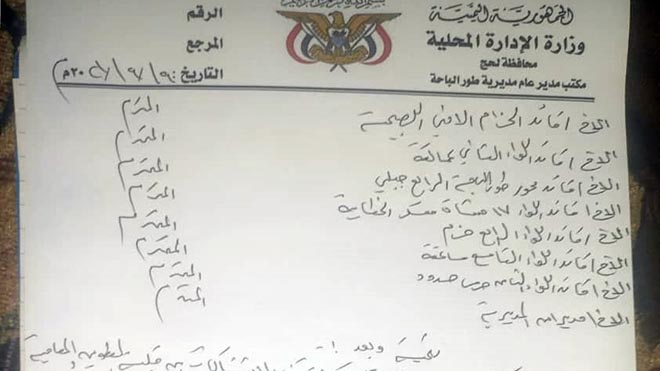 بسم الله الرحمن الرحيم
الجمهورية اليمنية
وزارة الإدارة المحلية
محافظة لحج
مكتب مدير عام مديرية طور الباحة
الرقم
المرجع
التاريخ
الاخ / قائد الحزام الامني الصبيحة المحترم
الاخ / قائد اللواء الثاني عمالقة المحترم
الاخ / قائد محور طور الباحة الرابع جبلي المحترم
الاخ / قائد اللواء ١٧ مشاة معسكر الخطابية المحترم
الاخ / قائد اللواء الرابع حزم المحترم
الاخ / قائد اللواء التاسع صاعقة المحترم
الاخ / قائد اللواء الثامن حرس حدود المحترم
الاخ / مدير امن المديرية المحترم
تحية وبعد